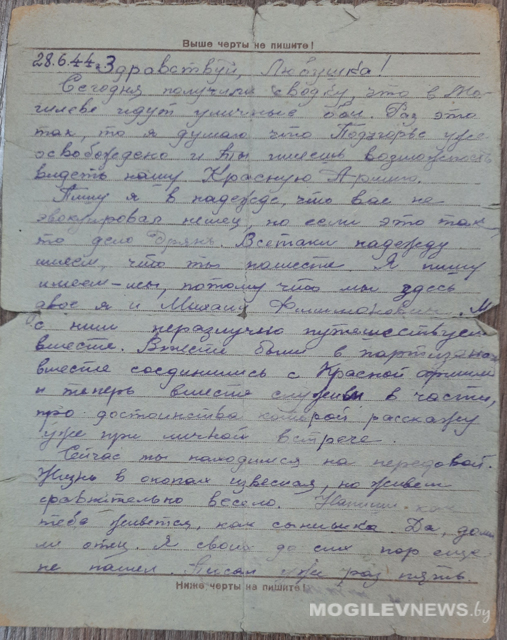 Выше черты не пишите!
28.6.44 г. Здравствуй, Любушка!
Сегодня получили сводку, что в Мо-
гилеве идут уличные бои. Раз это
так, то я думаю что Подгорье уже
освобождено и ты имеешь возможность
видеть нашу Красную Армию.
Пишу я в надежде, что вас не
эвакуировал немец, но если это так
то дело дрянь. Всетаки надежду
имеем, что ты на месте. Я пишу
имеем-мы, потому что мы здесь
двое я и Михаил Филимонович. М
с ним неразлучно путешествуем
вместе. Вместе были в партизанах
вместе соединились с Красной армией
и теперь вместе служим в части,
про достоинства которой расскажу
уже при личной встрече.
Сейчас мы находимся на передовой.
Жизнь в окопах известная, но живем
сравнительно весело. Напиши как
тебе живется, как сынишка. Да, дома
ли отец. Я своих до сих пор еще
не нашел. Писал уже раз пять.
Ниже черты не пишите!
MOGILEVNEWS.by